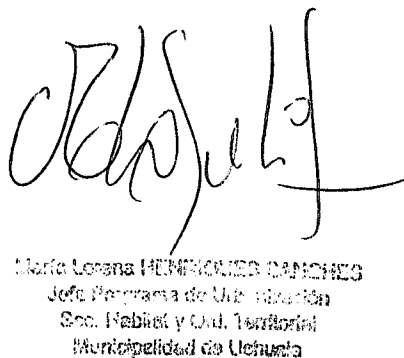 María Lorena HENRIQUES SANCHES
Jefe Programa de Urbanización
Sec. Hábitat y Ord. Territorial
Municipalidad de Ushuaia